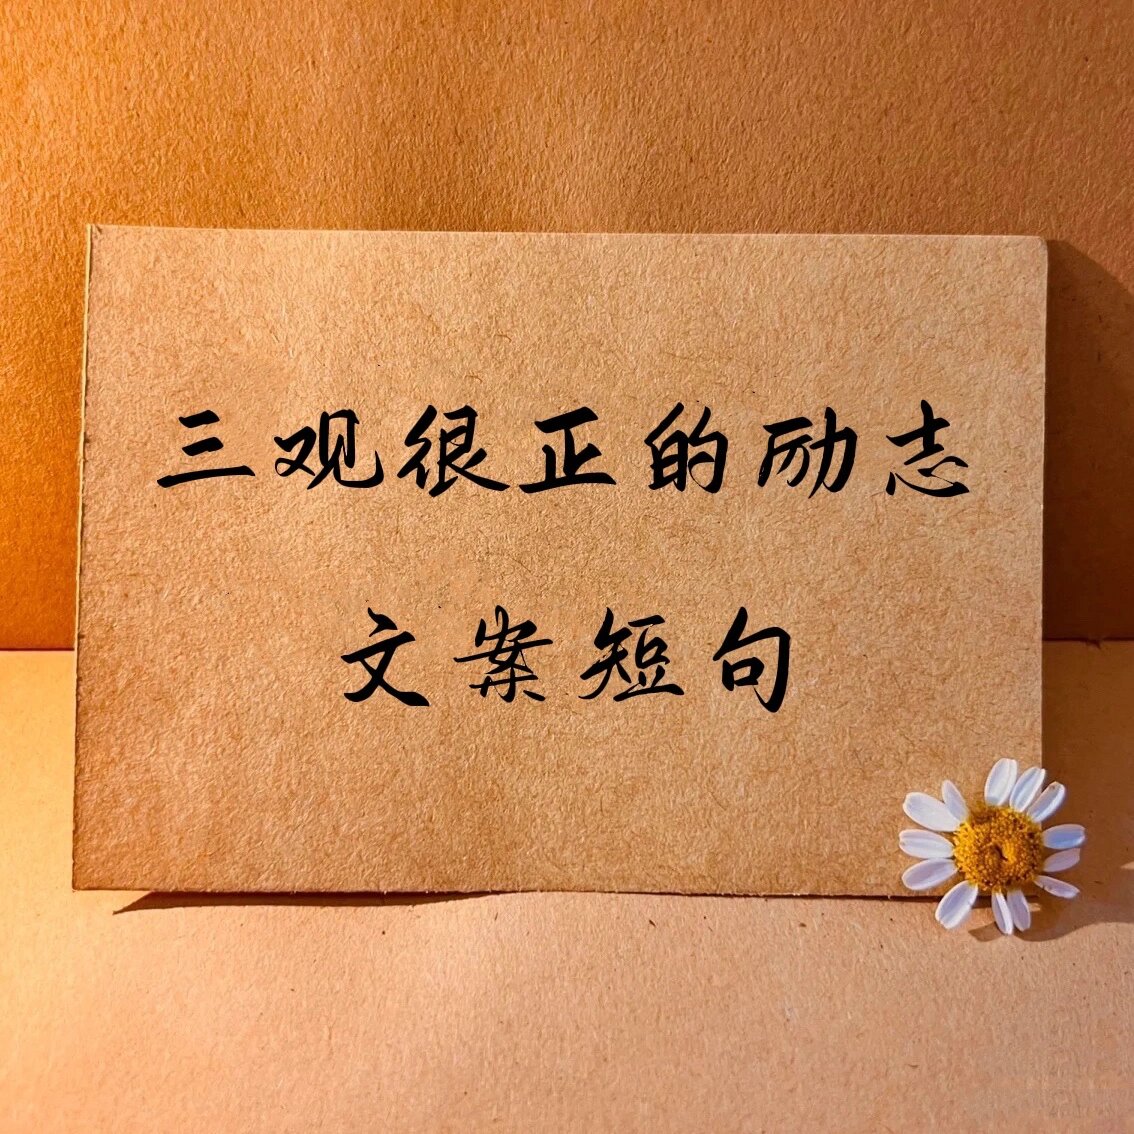 三观很正的励志
文案短句